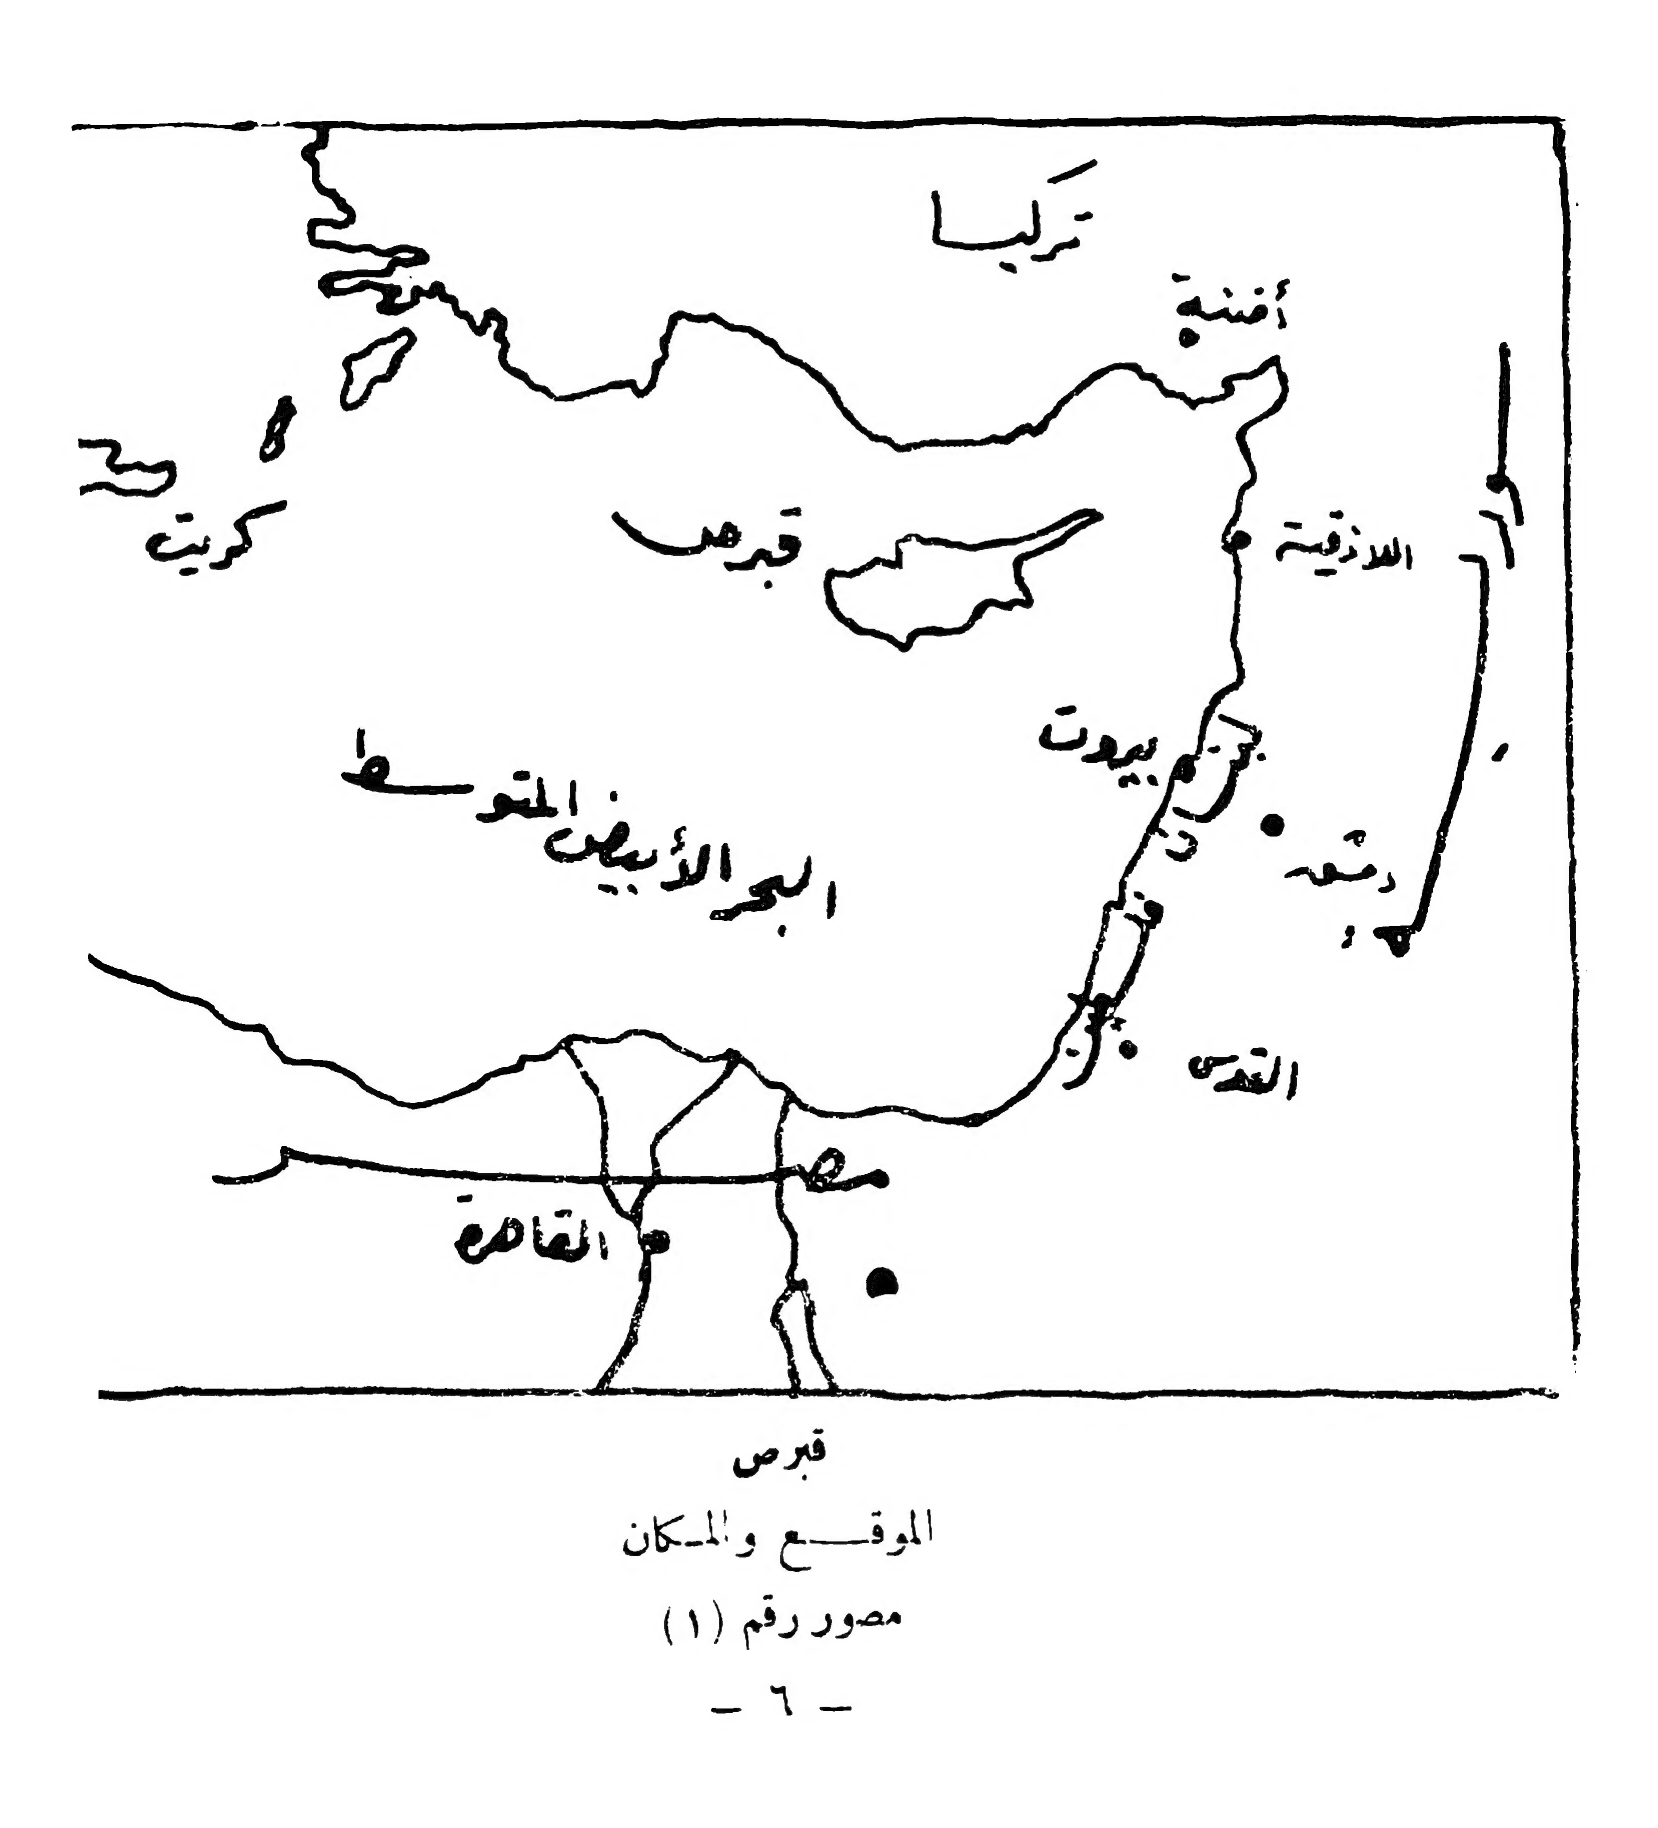 تركيا
أضنة
اللاذقية
قبرص
كريت
بيروت
دمشق
البحر الأبيض المتوسط
القدس
مصر
القاهرة
قبرص
الموقع والمكان
مصور رقم (١)
- ٦ -